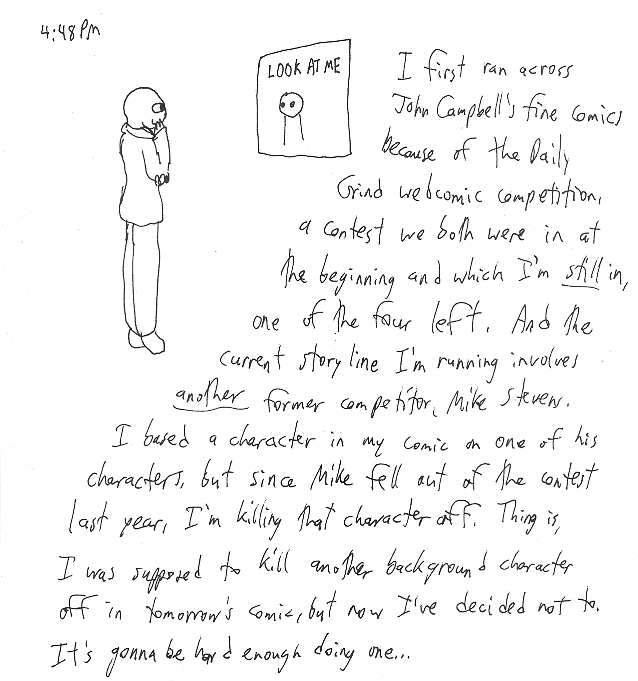 4:48 PM
LOOK AT ME
I first ran across
John Campbell's fine comics
because of the Daily
Grind webcomic competition,
a contest we both were in at
the beginning and which I'm still in,
one of the four left. And the
current storyline I'm running involves
another former competitor, Mike Stevens.
I based a character in my comic on one of his
characters, but since Mike fell out of the contest
last year, I'm killing that character off. Thing is,
I was supposed to kill another background character
off in tomorrow's comic, but now I've decided not to.
It's gonna be hard enough doing one...